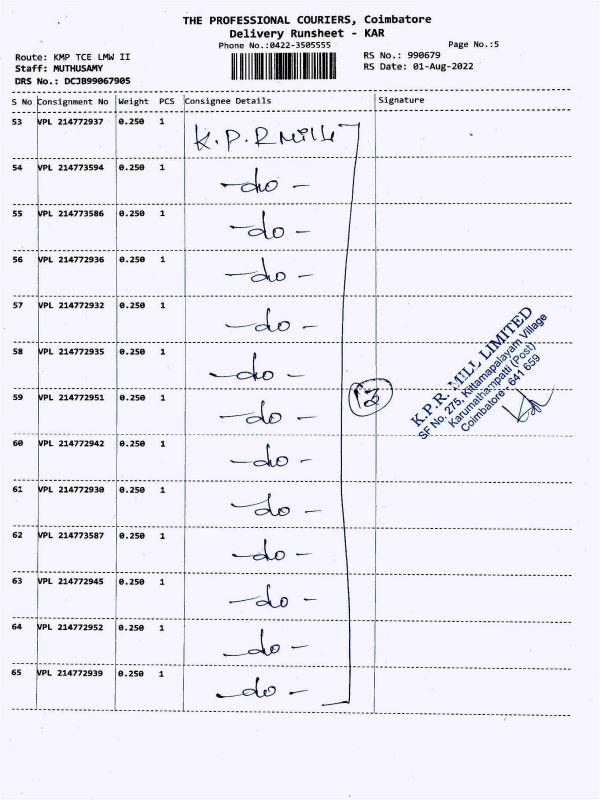 THE PROFESSIONAL COURIERS, Coimbatore
Delivery Runsheet - KAR
Phone No.:0422-3505555
Page No.:5
Route: KMP TCE LMW II
RS No.: 990679
Staff: MUTHUSAMY
RS Date: 01-Aug-2022
DRS No.: DCJB99067905
S No Consignment No Weight PCS Consignee Details Signature
53 VPL 214772937 0.250 1 K.P.R Mills
54 VPL 214773594 0.250 1 -do-
55 VPL 214773586 0.250 1 -do-
56 VPL 214772936 0.250 1 -do-
57 VPL 214772932 0.250 1 -do-
58 VPL 214772935 0.250 1 -do-
59 VPL 214772951 0.250 1 -do-
13
K.P.R. MILL LIMITED
SF No. 275, Kittamapalayam Village
Karumathampatti (Post)
Coimbatore - 641 659
60 VPL 214772942 0.250 1 -do-
61 VPL 214772930 0.250 1 -do-
62 VPL 214773587 0.250 1 -do-
63 VPL 214772945 0.250 1 -do-
64 VPL 214772952 0.250 1 -do-
65 VPL 214772939 0.250 1 -do-